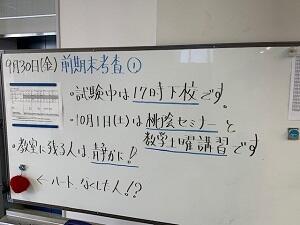 9月30日(金) 前期末考査①
・試験中は17時下校です。
・10月1日(土)は桃陰セミナーと
数学土曜講習です
・教室に残る人は静かに!
←ハート、なくした人!?